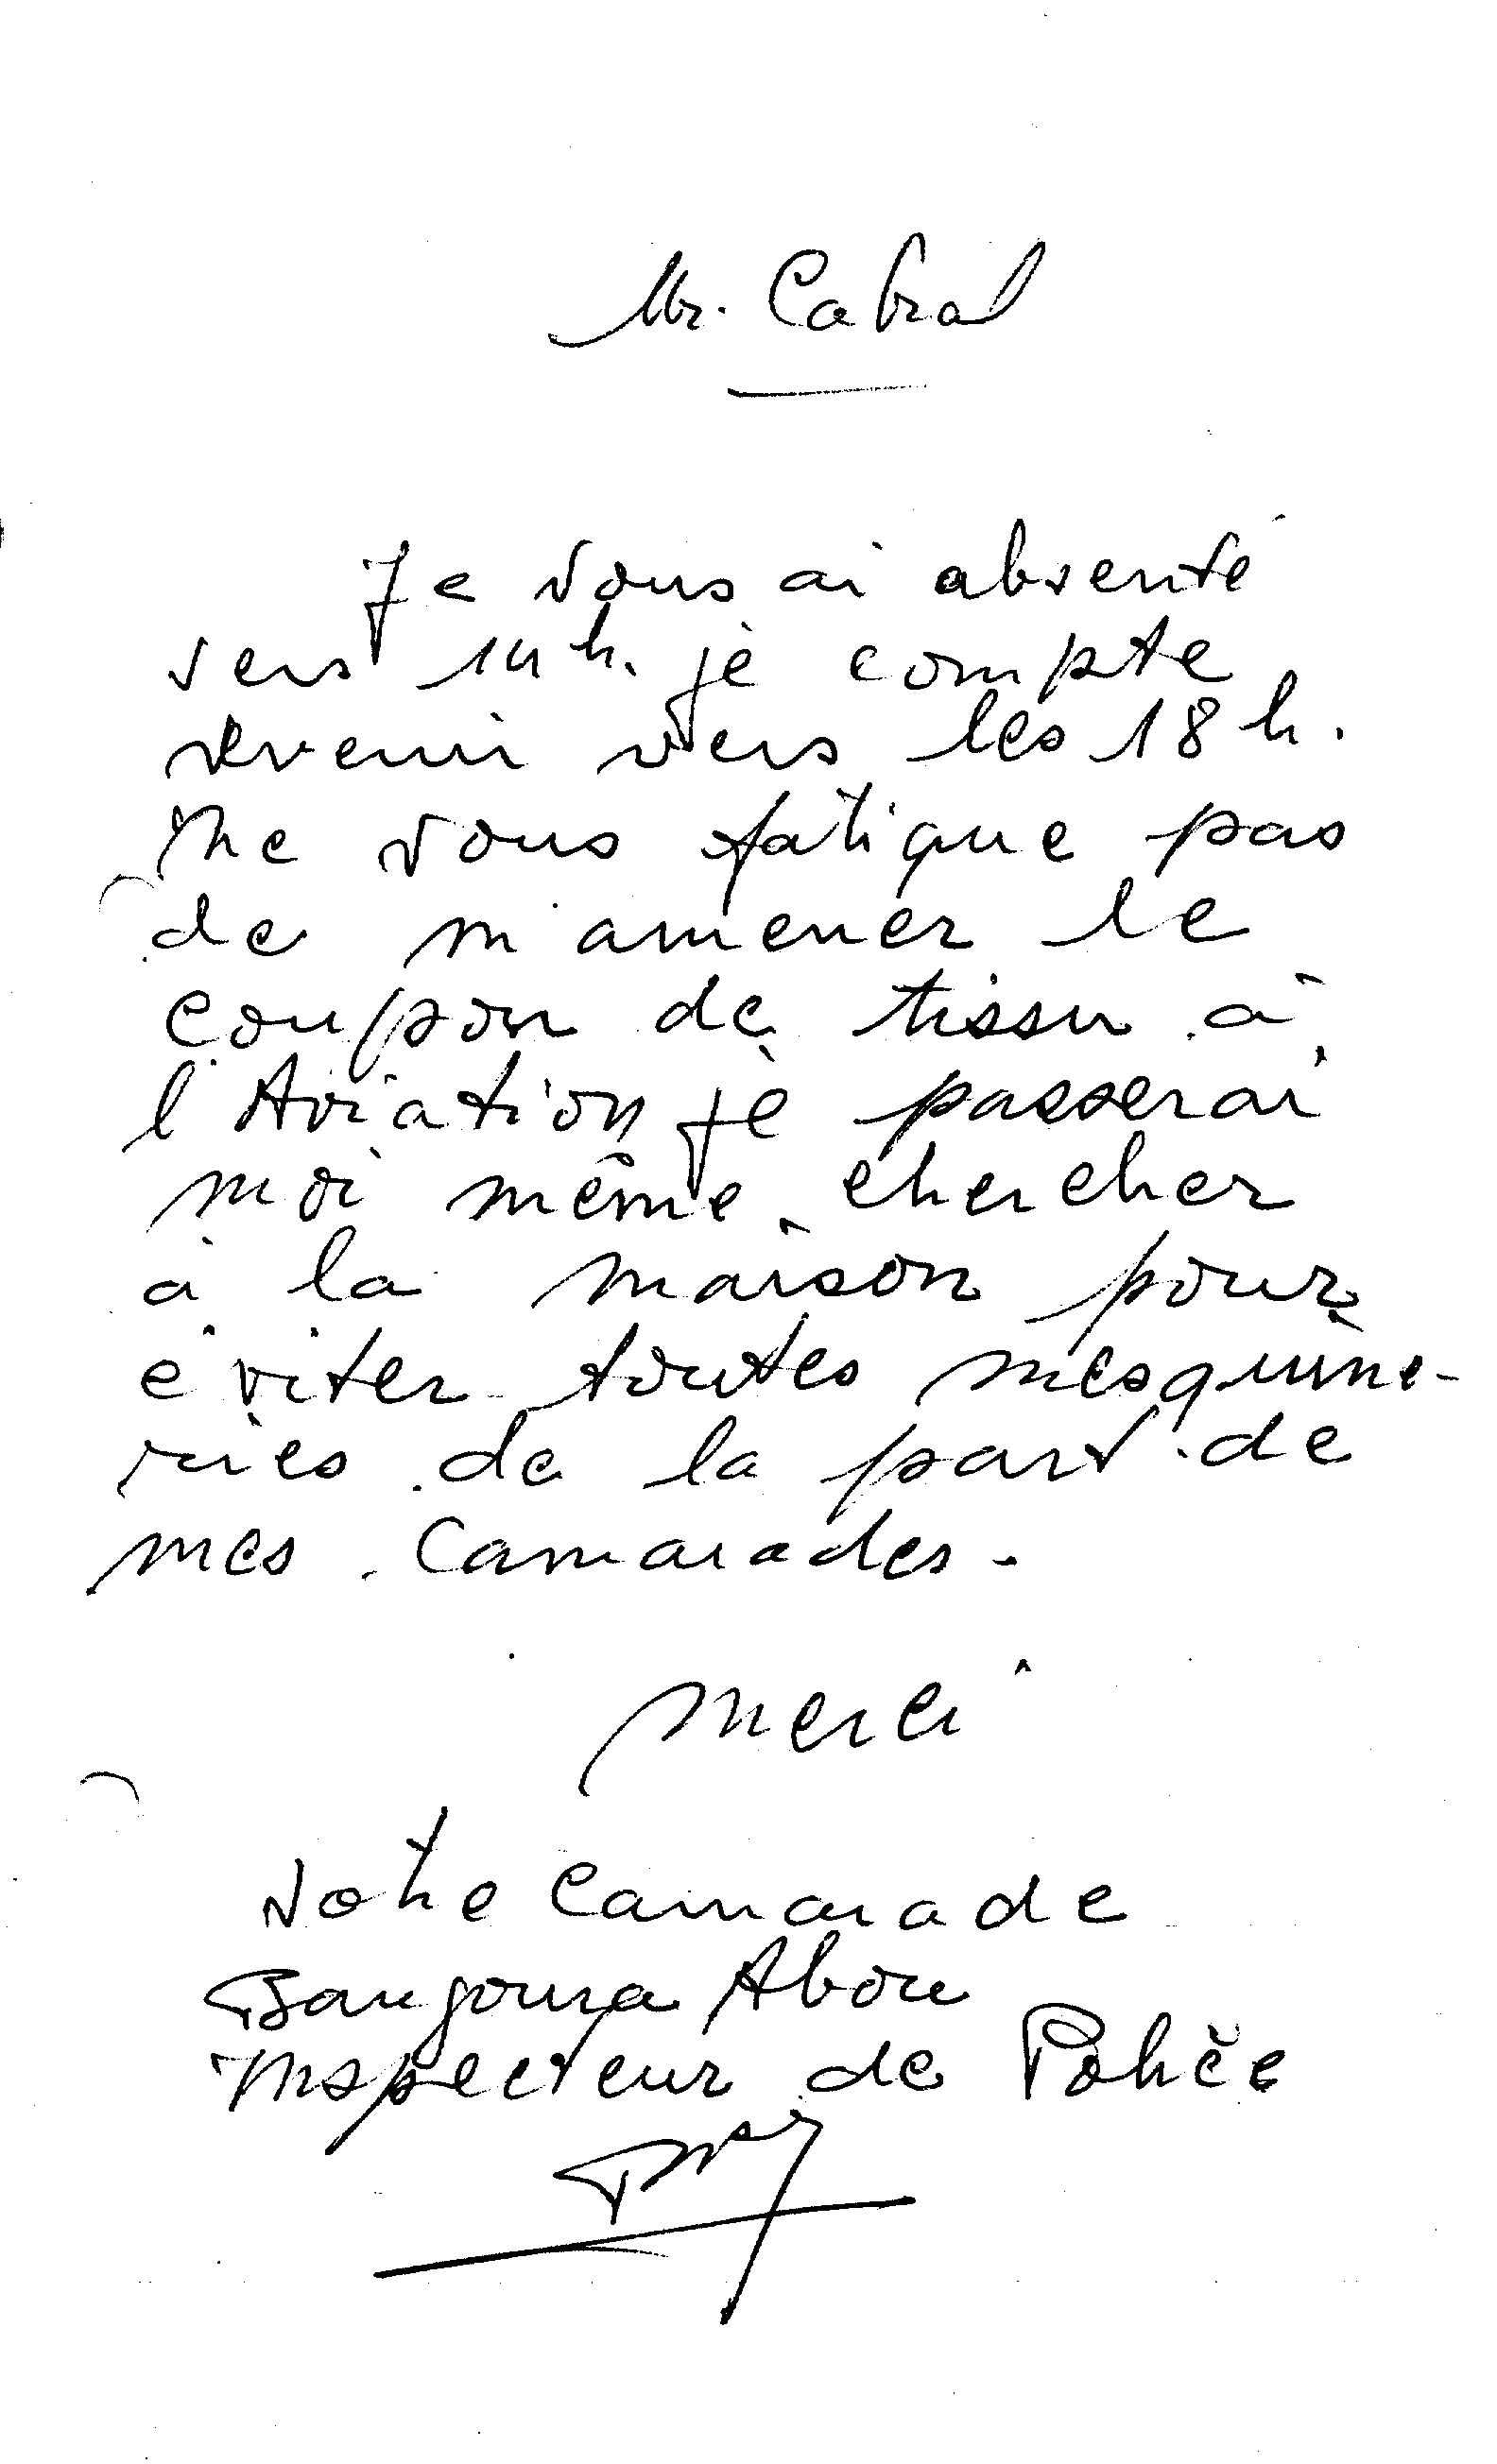 Mr. Cabral
Je vous ai absenté
vers 14h. je compte
revenir vers les 18h.
Ne vous fatigue pas
de m'amener le
coupon de tissu à
l'Aviation je passerai
moi même chercher
à la maison pour
éviter toutes mesquine-
ries de la part de
mes Camarades.
Merci
Votre Camarade
Bangoura Abou
Inspecteur de Police